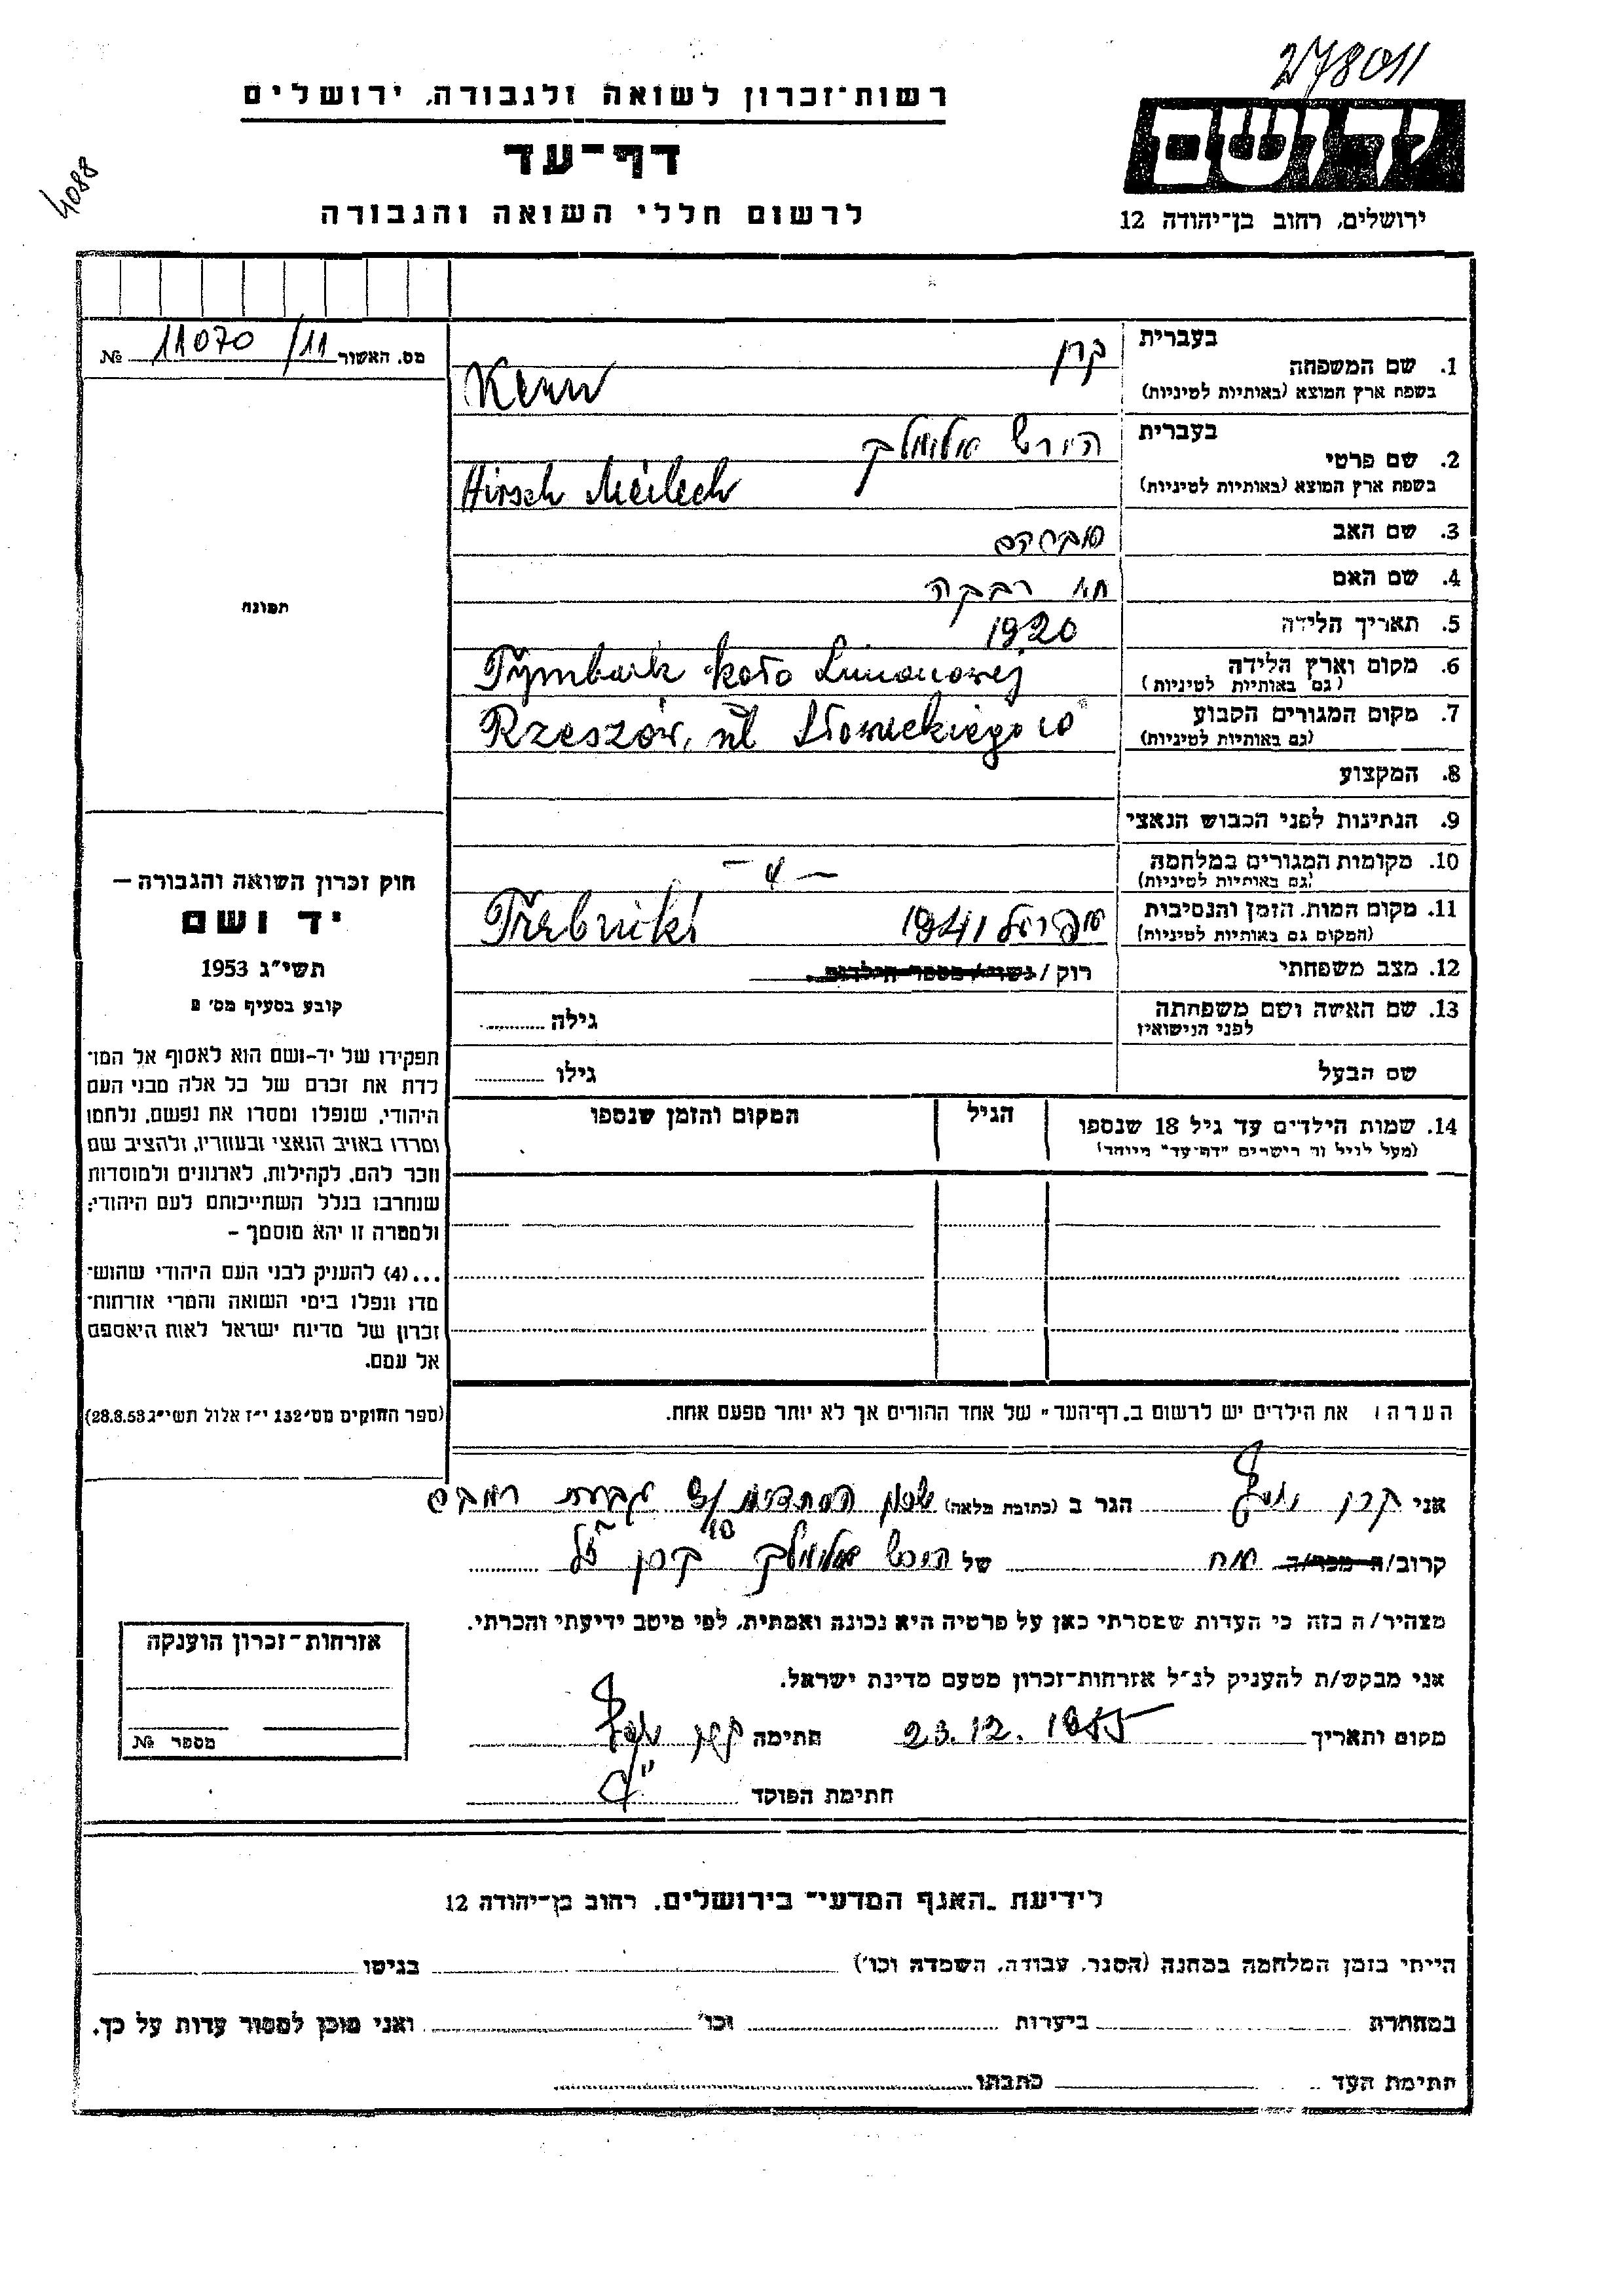 278011
רשות־זכרון לשואה ולגבורה, ירושלים
דף־עד
לרשום חללי השואה והגבורה
ידושם
ירושלים, רחוב בן־יהודה 12
4088
מס. האשור 11070/11 №
בעברית
1. שם המשפחה קרן
בשפת ארץ המוצא (באותיות לטיניות) Kern
בעברית
2. שם פרטי הירש אלימלך
בשפת ארץ המוצא (באותיות לטיניות) Hirsch Meilech
3. שם האב
4. שם האם רבקה
5. תאריך הלידה 1920
6. מקום וארץ הלידה Tymbark koło Limanowej
(גם באותיות לטיניות)
7. מקום המגורים הקבוע Rzeszów, ul Słowackiego 10
(גם באותיות לטיניות)
8. המקצוע
9. הנתינות לפני הכבוש הנאצי
10. מקומות המגורים במלחמה
(גם באותיות לטיניות)
11. מקום המות, הזמן והנסיבות אפריל 1941
(המקום גם באותיות לטיניות)
12. מצב משפחתי רוק / נשוי / מספר הילדים
13. שם האשה ושם משפחתה גילה
לפני הנישואין
שם הבעל גילו
14. שמות הילדים עד גיל 18 שנספו הגיל המקום והזמן שנספו
(מעל לגיל זה רישרים "דף־עד" מיוחד)
הערה: את הילדים יש לרשום ב„דף־העד" של אחד ההורים אך לא יותר מפעם אחת.
תמונה
חוק זכרון השואה והגבורה —
יד ושם
תשי"ג 1953
קובע בסעיף מס' 2
תפקידו של יד-ושם הוא לאסוף אל המו־
לדת את זכרם של כל אלה מבני העם
היהודי, שנפלו ומסרו את נפשם, נלחמו
ומרדו באויב הנאצי ובעוזריו, ולהציב שם
וזכר להם, לקהילות, לארגונים ולמוסדות
שנחרבו בגלל השתייכותם לעם היהודי;
ולמטרה זו יהא מוסמך —
...(4) להעניק לבני העם היהודי שהוש־
מדו ונפלו בימי השואה והמרי אזרחות־
זכרון של מדינת ישראל לאות היאספם
אל עמם.
(ספר החוקים מס' 132 י"ז אלול תשי"ג 28.8.53)
אני קרן יוסף הגר ב (כתובת מלאה) שכון
קרוב/ה מכר/ה אח של הירש אלימלך קרן ז"ל
מצהיר/ה בזה כי העדות שמסרתי כאן על פרטיה היא נכונה ואמתית, לפי מיטב ידיעתי והכרתי.
אני מבקש/ת להעניק לנ"ל אזרחות־זכרון מטעם מדינת ישראל.
מקום ותאריך 23.12.1955 חתימה קרן יוסף
חתימת הפוקד
אזרחות־זכרון הוענקה
מספר №
לידיעת „האגף המדעי" בירושלים, רחוב בן־יהודה 12
הייתי בזמן המלחמה במחנה (הסגר, עבודה, השמדה וכו') בגיטו
במחתרת ביערות וכו' ואני מוכן למסור עדות על כך.
חתימת העד כתבתו